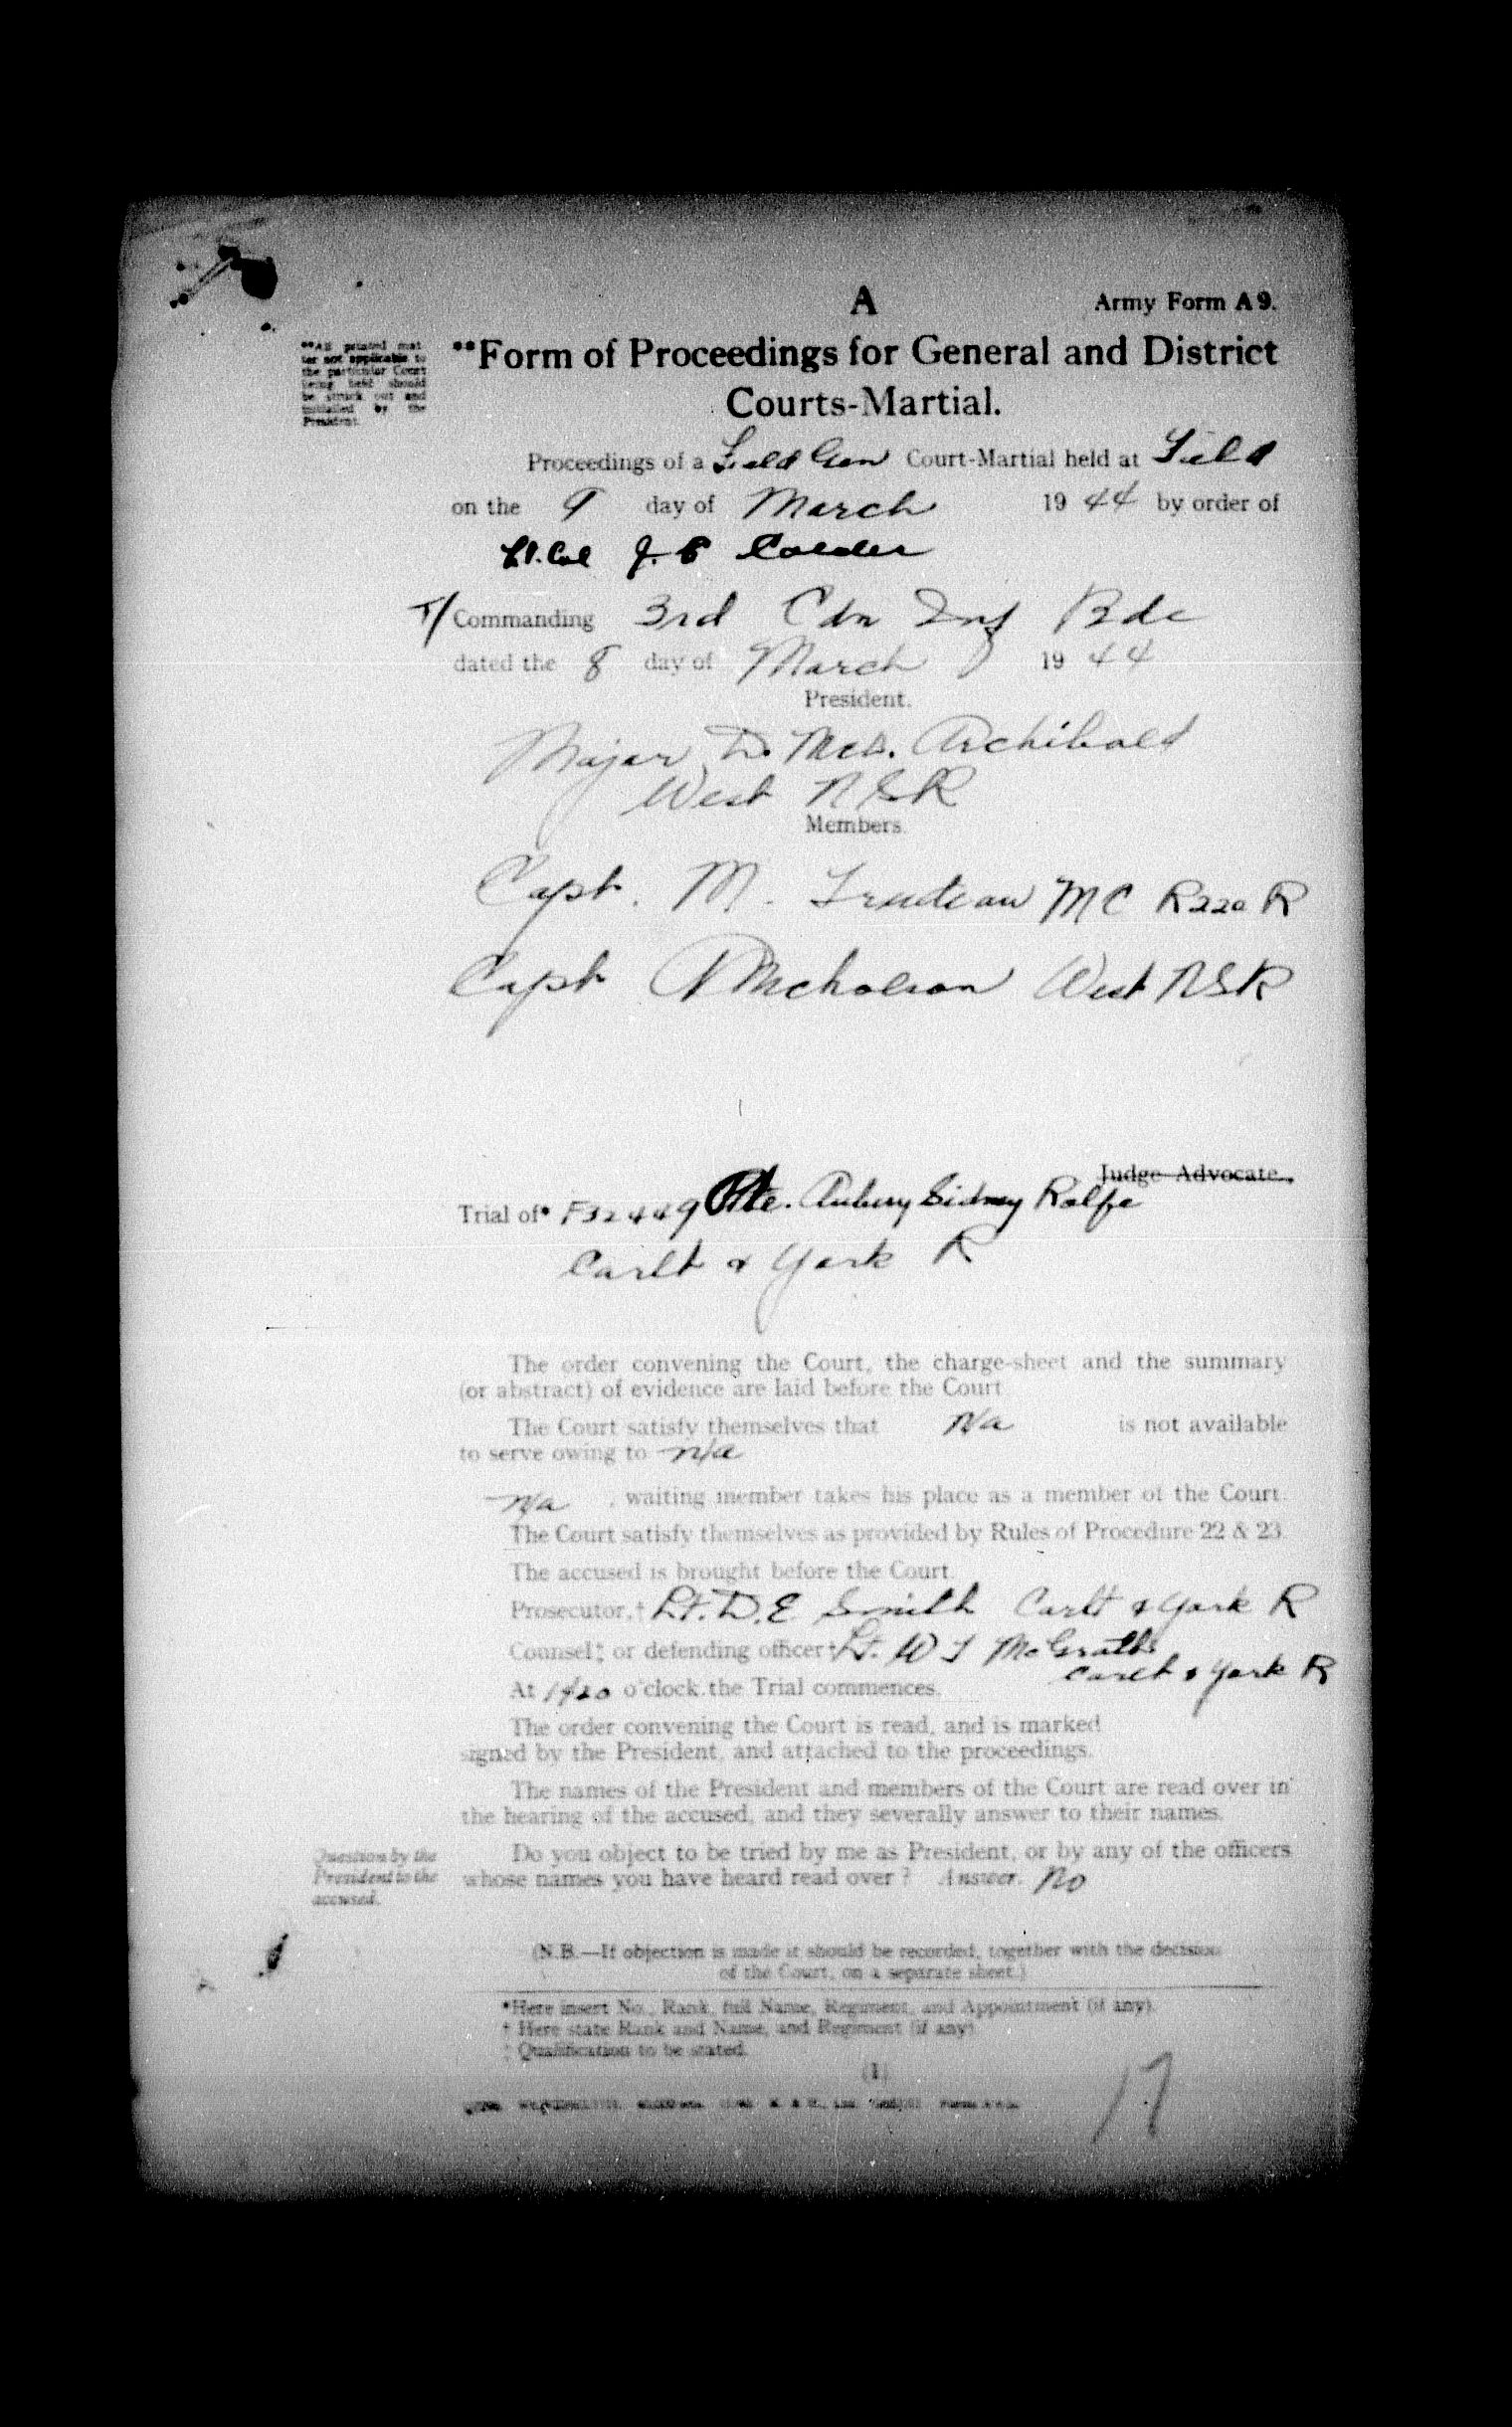 A
Army Form A 9.
**All printed mat-
ter not applicable to
the particular Court
being held should
be struck out and
initialled by the
President.
**Form of Proceedings for General and District
Courts-Martial.
Proceedings of a Field Gen Court-Martial held at Field
on the 9 day of March 1944 by order of
Lt. Col J. P Calder
T/Commanding 3rd Cdn Inf Bde
dated the 8 day of March 1944
President.
Major D. McD. Archibald
West NSR
Members.
Capt. M. Trudeau MC R22e R
Capt N Nicholson West NSR
Judge-Advocate.
Trial of* F32449 Pte. Aubury Sidney Rolfe
Carlt & York R
The order convening the Court, the charge-sheet and the summary
(or abstract) of evidence are laid before the Court.
The Court satisfy themselves that N/a is not available
to serve owing to n/a
N/a , waiting member takes his place as a member of the Court.
The Court satisfy themselves as provided by Rules of Procedure 22 & 23.
The accused is brought before the Court.
Prosecutor,† Lt. D. E Smith Carlt & York R
Counsel‡ or defending officer† Lt. W J McGrath
Carlt & York R
At o'clock the Trial commences.
The order convening the Court is read, and is marked
signed by the President, and attached to the proceedings.
The names of the President and members of the Court are read over in
the hearing of the accused, and they severally answer to their names.
Question by the
President to the
accused.
Do you object to be tried by me as President, or by any of the officers
whose names you have heard read over? Answer. No
(N.B.—If objection is made it should be recorded, together with the decision
of the Court, on a separate sheet.)
*Here insert No., Rank, full Name, Regiment, and Appointment (if any).
† Here state Rank and Name, and Regiment (if any)
‡ Qualification to be stated.
(1)
17